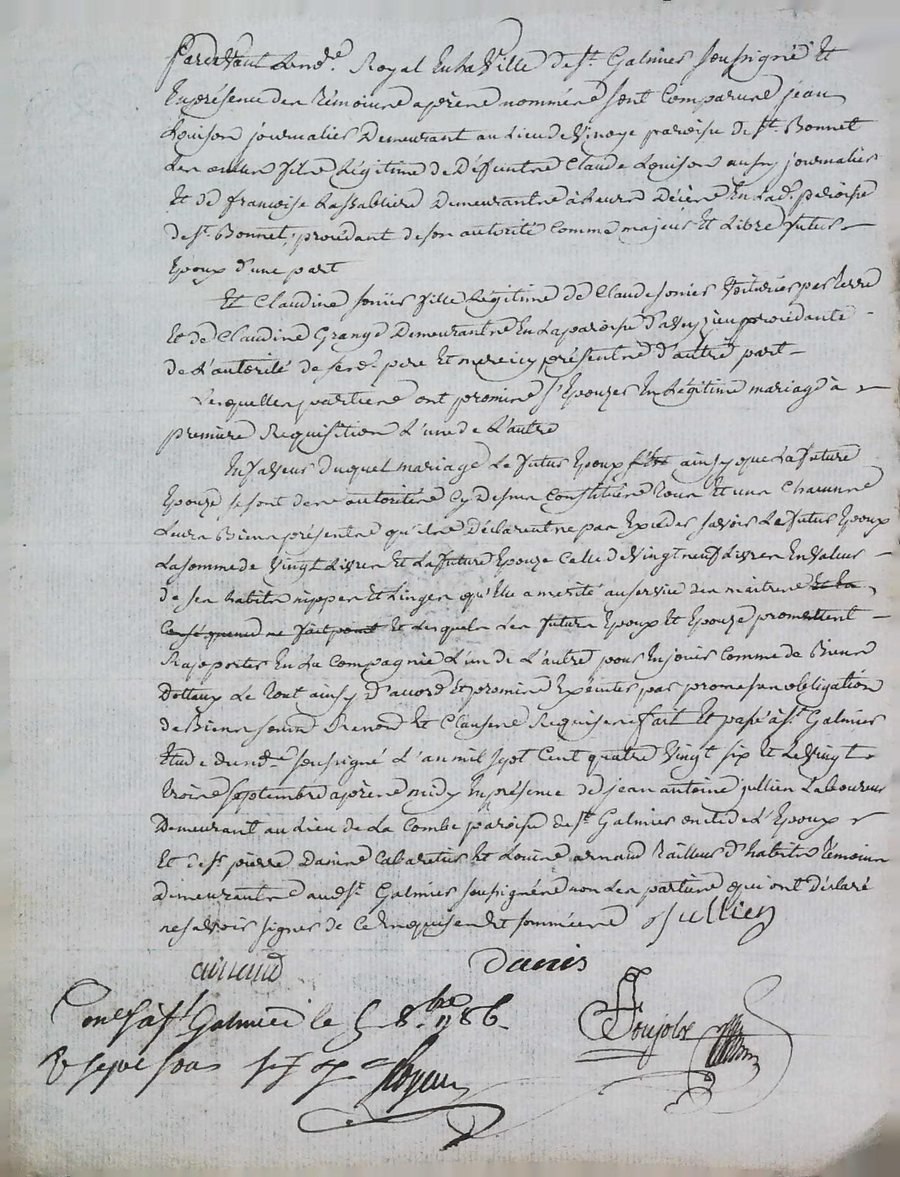 Pardevant Le no.re Royal En La Ville de St. Galmier soussigné Et
En présence des Témoins après nommés sont Comparus jean
Louison journalier Demeurant au Lieu de Vinoye paroisse de St. Bonnet
Les oulles fils Légitime de Défunts Claude Louison aussy journalier
Et de francoise Lassablier Demeurants à Leurs Décès En lad. paroisse
de St. Bonnet, procédant de son autorité Comme majeur Et Libre futur
Epoux d'une part
Et Claudine sonier fille Légitime de Claude sonier Voiturier par terre
Et de Claudine Grange Demeurants En La paroisse d'aveyzieu procédante
de L'autorité de sesd. pere Et mere icy présents d'autre part
Lesquelles parties ont promis s'Epouzer En Légitime mariage à
premiere Requisition L'un de L'autre
En faveur duquel mariage Le futur Epoux ainsy que La future
Epouze se sont de autorités Cy Dessus Constitués Tous Et uns Chacuns
Leurs Biens présents qu'ils Déclarent ne pas Excéder savoir Le futur Epoux
La somme de Vingt Livres Et La future Epouze Celle de Vingt neuf Livres En Valeur
de ses habits nippes Et Linges qu'Elle a merité au service des maitres Et La
Conséquend ne fait point Et Lesquels Les futurs Epoux Et Epouze promettent
Rapporter En La Compagnie L'un de L'autre pour En jouir Comme de Biens
Dottaux Le Tout ainsy D'accord Et promis Exécuter par promesses obligation
de Biens soum. Renon. Et Clauses Requises fait Et passé à St. Galmier
Etude dud. no.re soussigné L'an mil sept Cent quatre Vingt six Et Le Vingt
Trois Septembre après midy En présence de jean antoine jullien Laboureur
Demeurant au Lieu de La Combe paroisse de St. Galmier oncle de L'Epoux
Et de Sr. pierre Danis Cabaretier Et Louis arnaud Tailleur d'habits Témoins
demeurants aud. St. Galmier soussignés non Les parties qui ont déclaré
ne savoir signer de Ce Enquises Et sommées Jullien
arnaud Danis
Con.lé à St. Galmier le 5 8.bre 1786
R sept sous